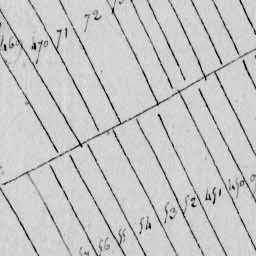 469 470 71 72
56 55 54 53 52 451 450